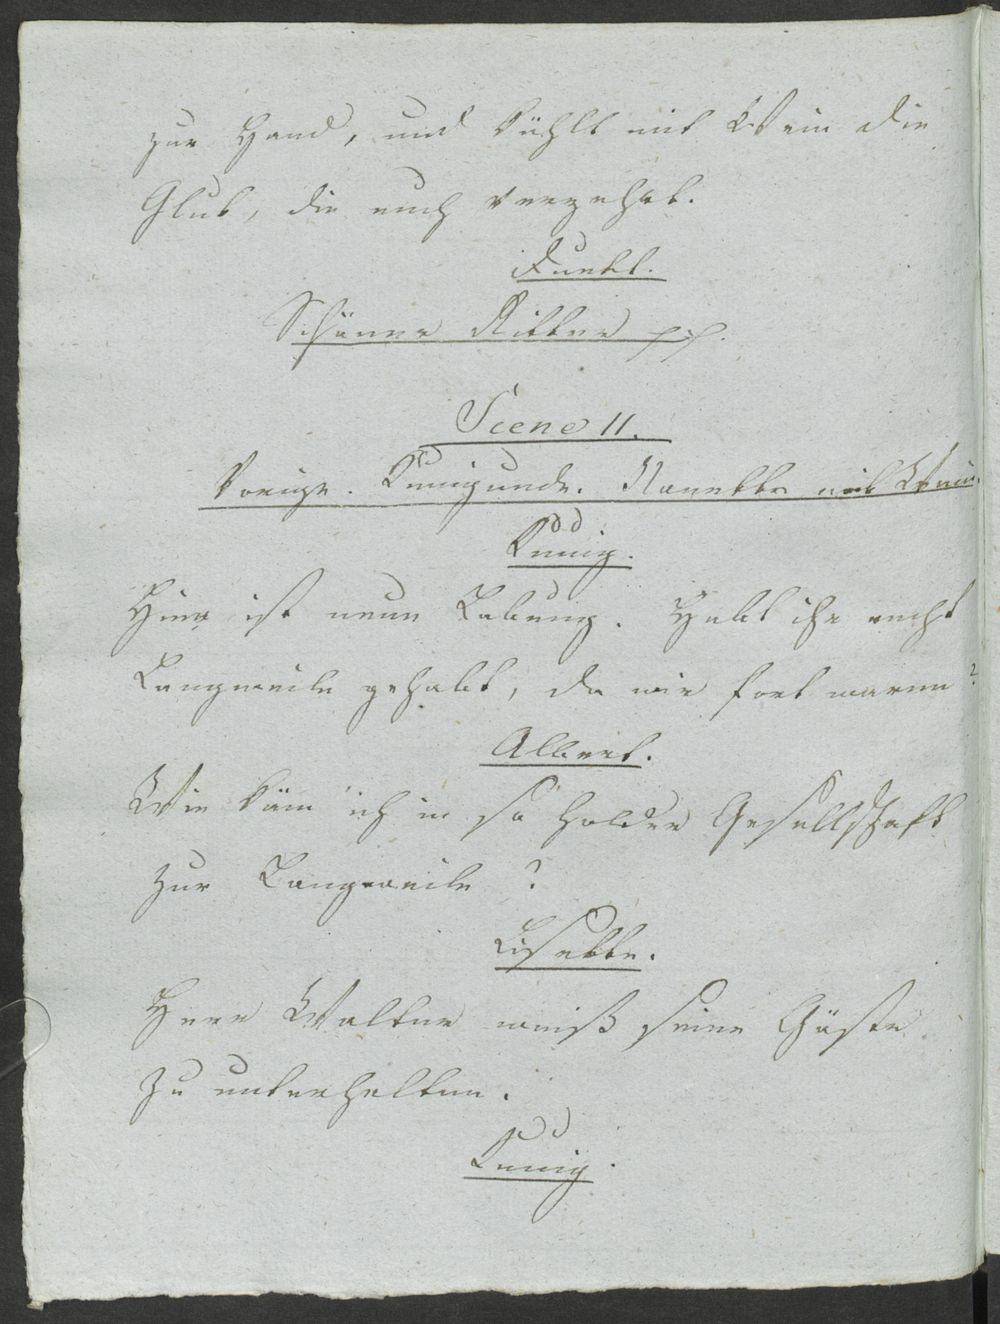 zur Hand, und kühlt mit Wein die
Glut, die euch verzehrt.
Duett.
Schöner Ritter pp.
Scene 11.
Vorige. Kunigunde. Nanette mit Wein.
Kunig.
Hier ist neue Labung. Habt ihr recht
Langweile gehabt, da wir fort waren?
Albert.
Wie käm' ich in so holder Gesellschaft
zur Langweile?
Lisette.
Herr Walter weiß seine Gäste
zu unterhalten.
Kunig.